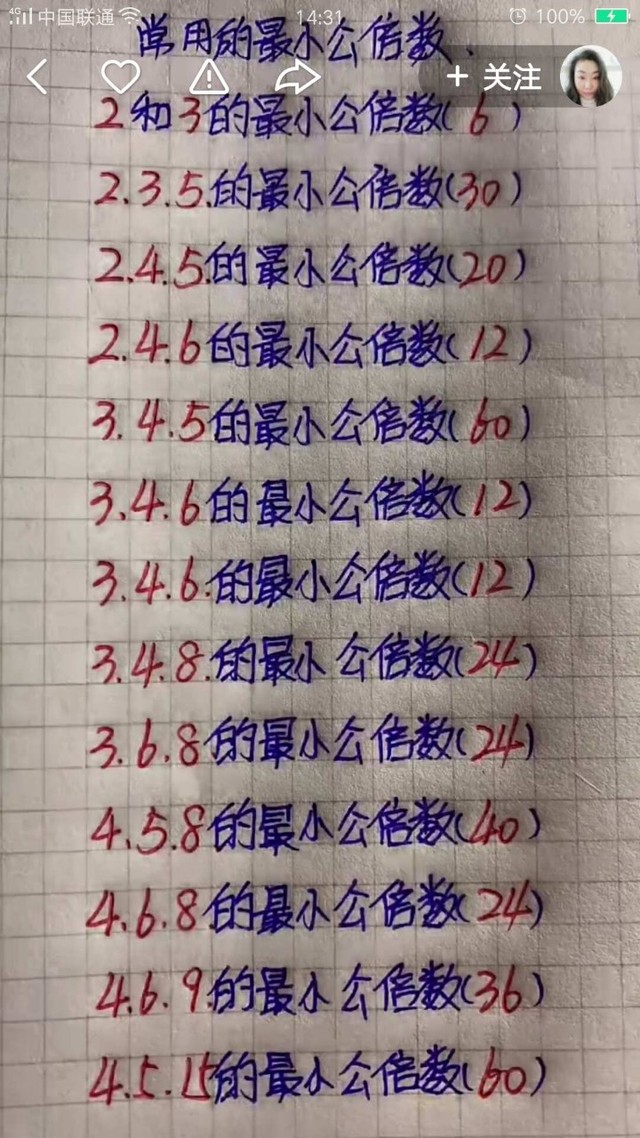 4G 中国联通 14:31 100%
常用的最小公倍数、
+ 关注
2和3的最小公倍数(6)
2.3.5.的最小公倍数(30)
2.4.5.的最小公倍数(20)
2.4.6的最小公倍数(12)
3.4.5的最小公倍数(60)
3.4.6的最小公倍数(12)
3.4.6.的最小公倍数(12)
3.4.8.的最小公倍数(24)
3.6.8的最小公倍数(24)
4.5.8的最小公倍数(40)
4.6.8的最小公倍数(24)
4.6.9.的最小公倍数(36)
4.5.15的最小公倍数(60)